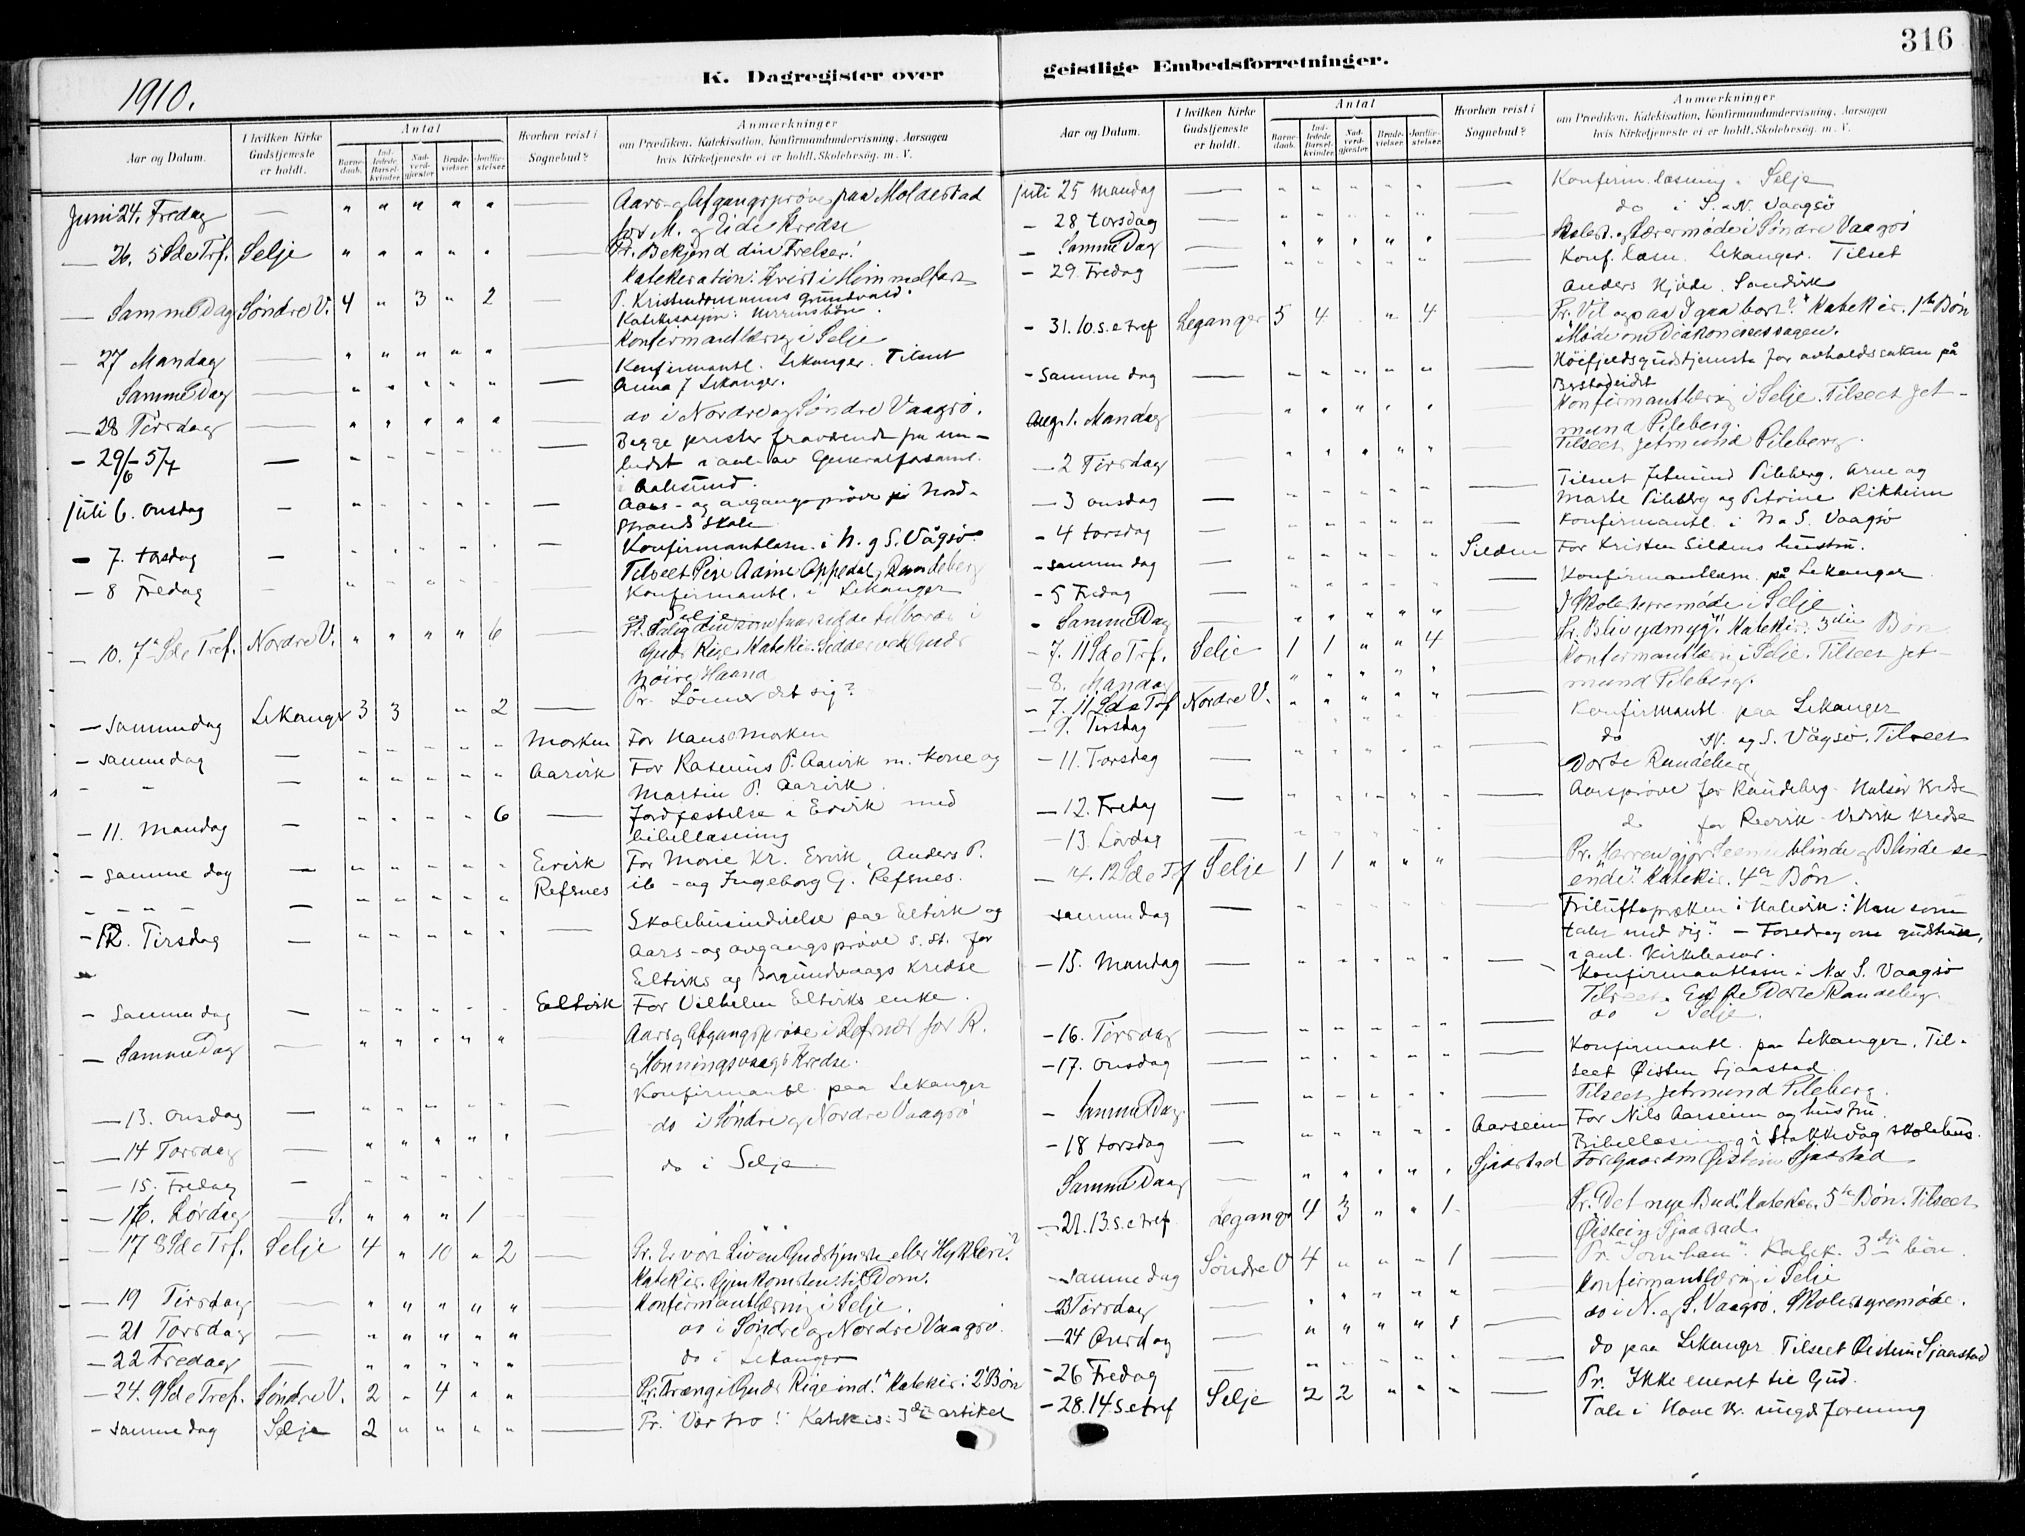 316
K. Dagregister over geistlige Embedsforretninger.
1910.
Aar og Datum. I hvilken Kirke Gudstjeneste er holdt. Antal Barnedaab. Indledede Barselkvinder. Nadverdgjæster. Brudevielser. Jordfæstelser. Hvorhen reist i Sognebud? Anmærkninger om Prædiken, Katekisation, Konfirmandundervisning, Aarsagen hvis Kirketjeneste ei er holdt, Skolebesøg, m. V.
Juni 24. Fredag — " " " " " Aars- og Afgangsprøve paa Moldestad
for M. og Eide Kredse
— 26. 5 S de Trf. Selje " " " " " Pr. Bekjend din Frelser!
Katekisation: Kristi Himmelfart
— Samme Dag Søndre V. 4 " 3 " 2 — P. Kristendommens grundvold.
Katekisasjon:
Konfirmantlæsning i Selje
— 27 Mandag — " " " " "
Konfirmantl. Lekanger. Tilseet
Samme Dag — " " " " " — Anna J Lekanger.
— 28 Tirsdag — " " " " " do i Nordre og Søndre Vaagsø.
— 29/6 – 5/7 — " " " " " — Begge prester fraværende fra em-
bedet i anl. av Generalforsaml.
i Aalesund.
Juli 6. onsdag — " " " " " — Aars- og avgangsprøve på Nord-
strands skole
— 7. torsdag — " " " " " — Konfirmantlæsn. i N. og S. Vågsø.
Tilseet Pige Adine Oppedal, Randeberg
— 8 Fredag — " " " " " Konfirmantl. i Lekanger
og Selje
— 10. 7 S de Tref. Nordre V. " " " " 6 — Pr. Salig den som faar sidde tilbords i
Guds Rige. Katekis. Sidder ved Guds
høire Haand
— samme dag Lekanger 3 3 " 2 — Pr. Lønner det sig?
— samme dag — " " " " " Morken For Hans Morken
" " — " " " " " Aarvik For Rasmus P. Aarvik m. kone og
Martin P. Aarvik.
— 11. Mandag — " " " " 6 — Jordfæstelse i Ervik med
bibellæsning
— samme dag — " " " " " Ervik For Marie Kr. Ervik, Anders P.
— " " — " " " " " Refsnes ib - og Ingeborg G. Refsnes.
— 12. Tirsdag — " " " " " — Skolehusindvielse paa Eltvik og
Aars- og avgangsprøve s. st. for
Eltviks og Borgundvaags kredse
— samme dag — " " " " " Eltvik For Vilhelm Eltviks enke.
— Samme Dag — " " " " " — Aars og Afgangsprøve i Refsnæs for R.
og Honningsvaags Kredse.
— 13. onsdag — " " " " " — Konfirmantl. paa Lekanger
— 14 Torsdag — " " " " " — do i Søndre og Nordre Vaagsø
— 15. Fredag — — do i Selje
— 16. Lørdag — S. " " " 1 —
— 17 8 S de Trf. Selje 4 " 10 " 2 — Pr. Er vort Liv en Gudstjeneste eller Hykleri?
Katekis. Gjenkomsten til Dom.
— 19 Tirsdag — " " " " " — Konfirmantlæsning i Selje.
— 21 Torsdag — " " " " " — do i Søndre og Nordre Vaagsø.
— 22 Fredag — " " " " " — do i Lekanger
— 24. 9 S de Tref. Søndre V. 2 " 4 " " — Pr. Træng i Guds Rige ind! Katekis: 2 Bøn
— samme dag Selje 2 " " " " — Pr. Vor tro! Katekis: 3 die artikel
Aar og Datum. I hvilken Kirke Gudstjeneste er holdt. Antal Barnedaab. Indledede Barselkvinder. Nadverdgjæster. Brudevielser. Jordfæstelser. Hvorhen reist i Sognebud? Anmærkninger om Prædiken, Katekisation, Konfirmandundervisning, Aarsagen hvis Kirketjeneste ei er holdt, Skolebesøg, m. V.
Juli 25 Mandag — " " " " " — Konfirm. læsning i Selje
— 28 torsdag — " " " " " — do i S. & N. Vaagsø
— Samme Dag — " " " " " — Skolest. og Lærermøde i Søndre Vaagsø
— 29. Fredag — " " " " " — Konf. læsn. Lekanger. Tilset
Anders Hjøde. Sandvik
— 31. 10. s. e. tref Leganger 5 4 " 4 — Pr. Vil ogsaa I gaa bort? Katekis. 1ste Bøn
Møde om Diakonissesagen.
— samme dag — " " " " " — Höifjeldsgudstjeneste for avholdssaken på
Berstadeidet
Aug. 1. Mandag — " " " " " — Konfirmantlæsning i Selje. Tilseet Jet-
mund Pileberg.
— 2 Tirsdag — " " " " " Tilseet Jetmund Pileberg.
— 3 onsdag — " " " " " — Tilseet Jetmund Pileberg, Arne og
Marte Pileberg og Petrine Rikheim
— 4 torsdag — " " " " " — Konfirmantl. i N & S. Vaagsø
— samme dag — " " " " " Silden For Kristen Sildens hustru.
— 5 Fredag — " " — Konfirmantlæsn. på Lekanger
— Samme Dag " " " " " — Skolestyremøde i Selje
— 7. 11 S de Trf. Selje 1 1 " " 4 Pr. Bliv ydmyg! Katekis. 3die Bøn
— 8. Mandag — " " " " " Konfirmantlæsn i Selje. Tilseet Jet-
mund Pileberg.
— 7. 11 S de Trf Nordre V. " " " " " —
— 9. Tirsdag Konfirmantl. paa Lekanger
— 11. Torsdag — " " " " " do N. og S. Vågsø. Tilseet
Dorte Randeberg
— 12. Fredag — " " " " " — Aarsprøve for Randeberg - Halsør Kreds
— 13. Lørdag — do for Rervik - Vedvik Kredse
— 14. 12 S de Trf Selje 1 1 " " " Pr. Herren gjør Seende blinde og Blinde se-
ende. Katekis. 4de Bøn.
samme dag — " " " " " Friluftspræken i Halsvik: Han som
taler med dig. — Foredrag om
i anl. Kirkebasar.
— 15. Mandag — " " " " " — Konfirmantlæsn i N & S. Vaagsø
Tilseet Dorte Randeberg.
— 16. Tirsdag — " " " " " — do i Selje.
— 17. Onsdag — " " " " " — Konfirmantl. paa Lekanger. Til-
seet Øisten Sjaastad
— Samme Dag — " " " " " — Tilseet Jetmund Pileberg.
— 18 torsdag — " " " " " Aarseim For Nils Aarseim og hustru.
Bibellæsning i Stokkvåg skolehus.
Samme Dag — " " " " " Sjaastad For Gaardm Øistein Sjaastad
— 21. 13. s. e tref Leganger 4 3 " " 1 — Pr. Det nye Bud. Katekis. 5te Bøn. Tilseet
Øistein Sjaastad.
— samme dag Søndre V 4 " " " 1 — Pr. Som han. Katek. 3die bön.
— 23 Tirsdag — " " " " " — Konfirmantlæsn i Selje
— 24 Onsdag — " " " " " — do i N. og S. Vaagsø. Skolestyremøde.
— 26 Fredag — " " " " " — do paa Lekanger Tilseet Øistein Sjaastad
— 28. 14 S e tref Selje 2 2 " " " — Pr. Ikke eneret til Gud.
Tale i Hove kr. ungd. forening